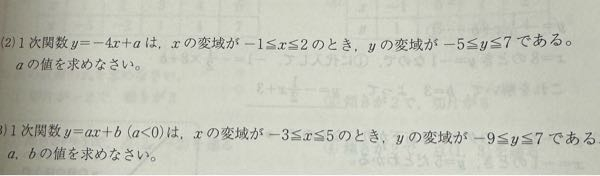 (2) 1次関数 y=-4x+a は，x の変域が -1≦x≦2 のとき，y の変域が -5≦y≦7 である。
a の値を求めなさい。
) 1次関数 y=ax+b (a<0) は，x の変域が -3≦x≦5 のとき，y の変域が -9≦y≦7 である
a，b の値を求めなさい。